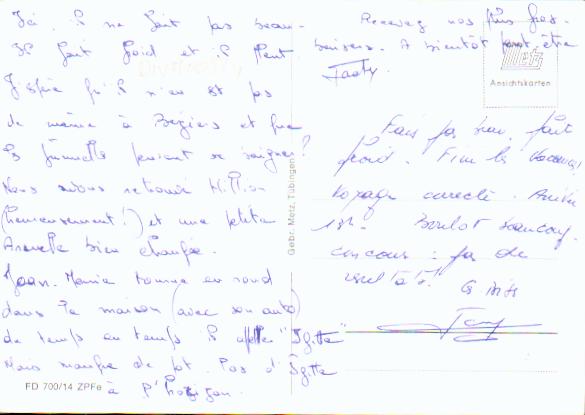 Ici il ne fait pas beau.
Il fait froid et il pleut.
J'espère qu'il n'en est pas
de même à Béziers et que
les jumelles peuvent se soigner?
Nous avons retrouvé
(heureusement!) et une petite
Armelle bien changée.
Jean-Marie tourne en rond
dans la maison (avec son auto)
de temps en temps il appelle "Igitte"
Mais manque de pot. Pas d'Igitte
à l'horizon.
FD 700/14 ZPFe
Gebr. Metz, Tübingen
Recevez nos plus gros
baisers. A bientôt peut-être
Metz
Ansichtskarten
Fais pas beau, fait
froid. Fini les vacances!
Voyage correct.
1h. Boulot beaucoup.
concours: pas de
résultats.